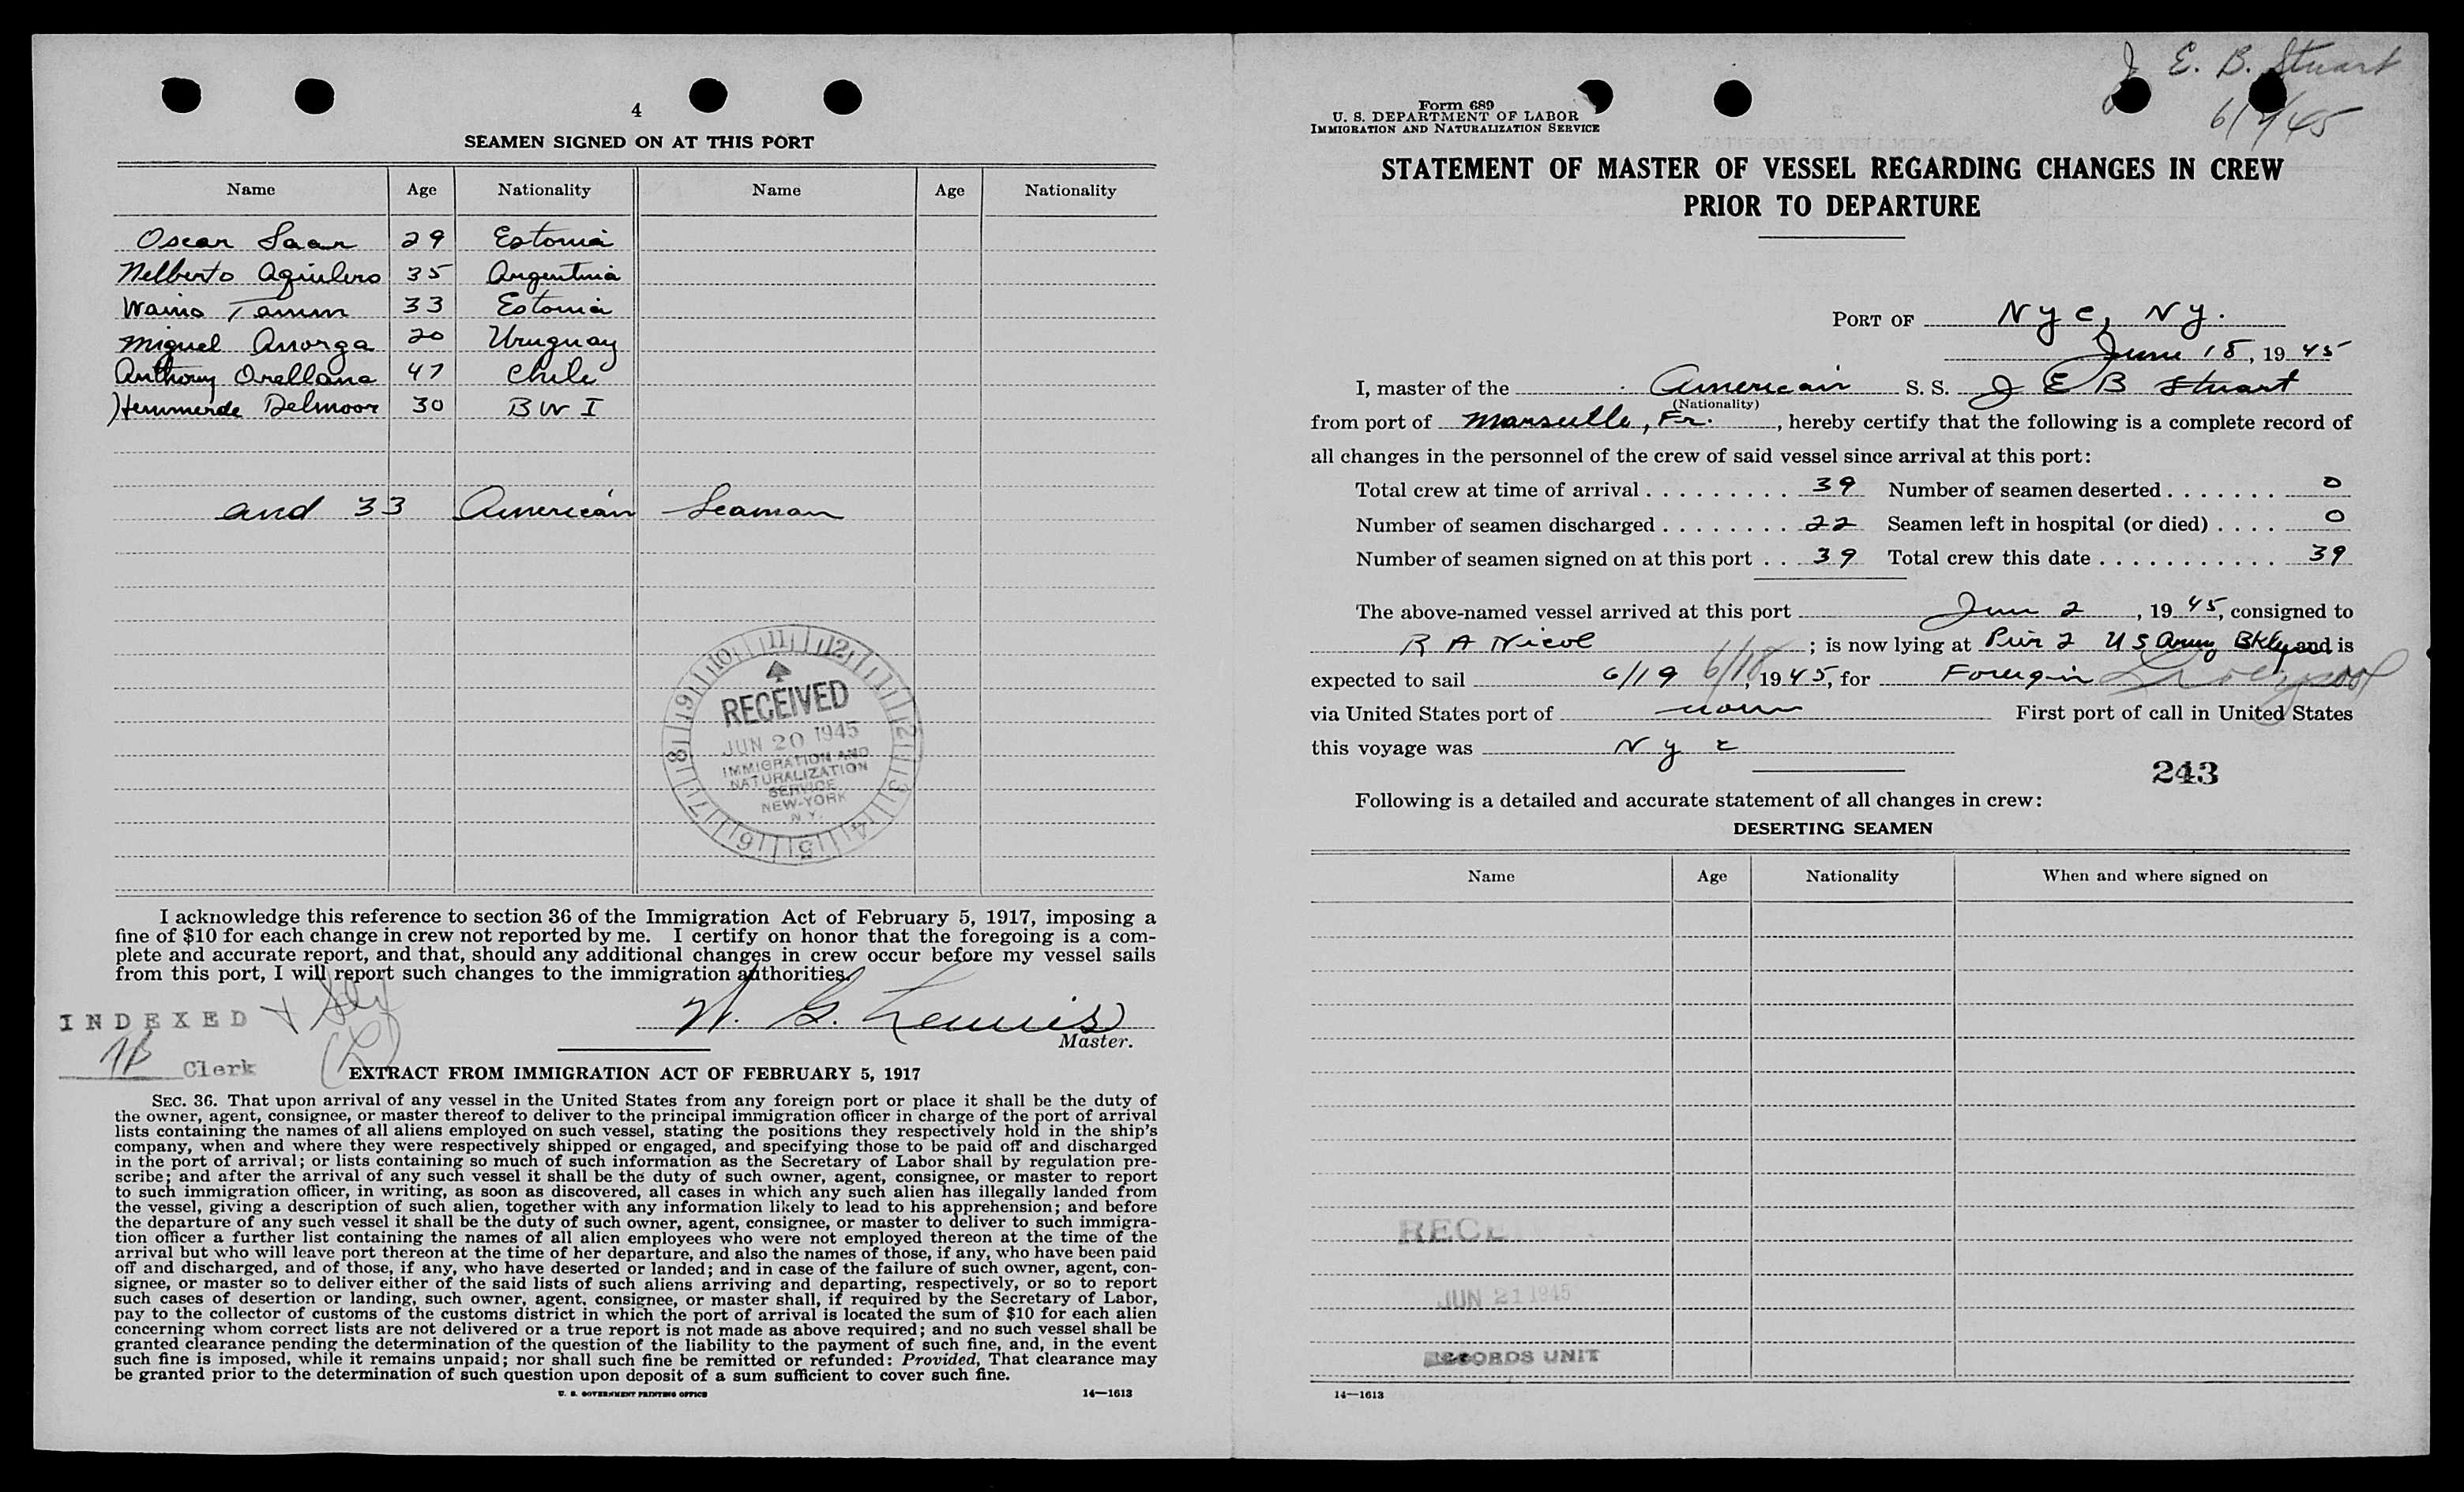 4
SEAMEN SIGNED ON AT THIS PORT
Name Age Nationality Name Age Nationality
Oscar Saar 29 Estonia
Nelberto Aguilero 35 Argentina
Waino Tamm 33 Estonia
Miguel Anorga 20 Uruguay
Anthony Orellana 47 Chile
Hemmerde Delmoor 30 B W I
and 33 American Seaman
RECEIVED
JUN 20 1945
IMMIGRATION AND
NATURALIZATION
SERVICE
NEW-YORK
N.Y.
I acknowledge this reference to section 36 of the Immigration Act of February 5, 1917, imposing a
fine of $10 for each change in crew not reported by me. I certify on honor that the foregoing is a com-
plete and accurate report, and that, should any additional changes in crew occur before my vessel sails
from this port, I will report such changes to the immigration authorities.
INDEXED
Clerk
Master.
EXTRACT FROM IMMIGRATION ACT OF FEBRUARY 5, 1917
SEC. 36. That upon arrival of any vessel in the United States from any foreign port or place it shall be the duty of
the owner, agent, consignee, or master thereof to deliver to the principal immigration officer in charge of the port of arrival
lists containing the names of all aliens employed on such vessel, stating the positions they respectively hold in the ship's
company, when and where they were respectively shipped or engaged, and specifying those to be paid off and discharged
in the port of arrival; or lists containing so much of such information as the Secretary of Labor shall by regulation pre-
scribe; and after the arrival of any such vessel it shall be the duty of such owner, agent, consignee, or master to report
to such immigration officer, in writing, as soon as discovered, all cases in which any such alien has illegally landed from
the vessel, giving a description of such alien, together with any information likely to lead to his apprehension; and before
the departure of any such vessel it shall be the duty of such owner, agent, consignee, or master to deliver to such immigra-
tion officer a further list containing the names of all alien employees who were not employed thereon at the time of the
arrival but who will leave port thereon at the time of her departure, and also the names of those, if any, who have been paid
off and discharged, and of those, if any, who have deserted or landed; and in case of the failure of such owner, agent, con-
signee, or master so to deliver either of the said lists of such aliens arriving and departing, respectively, or so to report
such cases of desertion or landing, such owner, agent, consignee, or master shall, if required by the Secretary of Labor,
pay to the collector of customs of the customs district in which the port of arrival is located the sum of $10 for each alien
concerning whom correct lists are not delivered or a true report is not made as above required; and no such vessel shall be
granted clearance pending the determination of the question of the liability to the payment of such fine, and, in the event
such fine is imposed, while it remains unpaid; nor shall such fine be remitted or refunded: Provided, That clearance may
be granted prior to the determination of such question upon deposit of a sum sufficient to cover such fine.
U. S. GOVERNMENT PRINTING OFFICE 14—1613
J E. B. Stuart
Form 689
U. S. DEPARTMENT OF LABOR
IMMIGRATION AND NATURALIZATION SERVICE
STATEMENT OF MASTER OF VESSEL REGARDING CHANGES IN CREW
PRIOR TO DEPARTURE
PORT OF NyC, Ny.
June 18, 1945
I, master of the American S. S. J E B Stuart
(Nationality)
from port of Marseille, Fr., hereby certify that the following is a complete record of
all changes in the personnel of the crew of said vessel since arrival at this port:
Total crew at time of arrival 39 Number of seamen deserted 0
Number of seamen discharged 22 Seamen left in hospital (or died) 0
Number of seamen signed on at this port 39 Total crew this date 39
The above-named vessel arrived at this port Jun 2, 1945, consigned to
R A Nicol; is now lying at Pier 2 U S Army Bklyn and is
expected to sail 6/19 6/18, 1945, for Foreign Liverpool
via United States port of none First port of call in United States
this voyage was N y c
243
Following is a detailed and accurate statement of all changes in crew:
DESERTING SEAMEN
Name Age Nationality When and where signed on
JUN 21 1945
RECORDS UNIT
14—1613